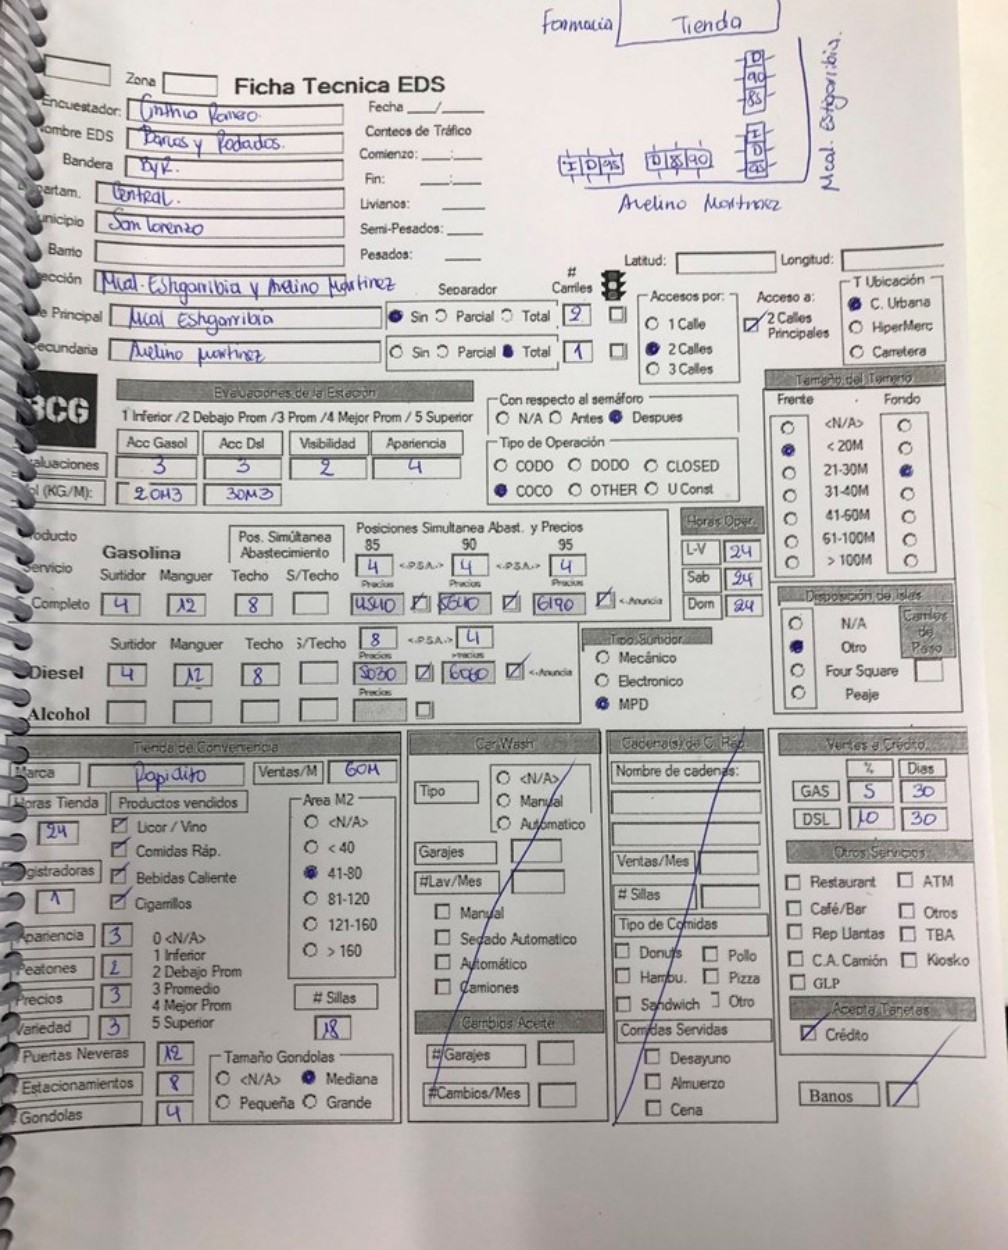 Farmacia Tienda
Mcal. Estigarribia.
D
90
85
I
D
95
I D 95 D 85 90
Avelino Martinez
Zona
Ficha Tecnica EDS
Encuestador: Cinthia Romero.
Fecha __/__
Nombre EDS Barcos y Rodados.
Conteos de Tráfico
Bandera ByR.
Comienzo: __:__
Departam. Central.
Fin: __:__
Municipio San Lorenzo
Livianos:
Semi-Pesados:
Barrio
Pesados:
Latitud: Longitud:
Dirección Mcal. Estigarribia y Avelino Martinez
Separador # Carriles
e Principal Mcal Estigarribia Sin Parcial Total 2
Secundaria Avelino Martinez Sin Parcial Total 1
Accesos por:
1 Calle
2 Calles
3 Calles
Acceso a:
2 Calles Principales
T Ubicación
C. Urbana
HiperMerc
Carretera
BCG
Evaluaciones de la Estación
1 Inferior /2 Debajo Prom /3 Prom /4 Mejor Prom / 5 Superior
Acc Gasol Acc Dsl Visibilidad Apariencia
Evaluaciones 3 3 2 4
Vol (KG/M): 20M3 30M3
Con respecto al semáforo
N/A Antes Despues
Tipo de Operación
CODO DODO CLOSED
COCO OTHER U Const
Tamaño del Terreno
Frente Fondo
<N/A>
< 20M
21-30M
31-40M
41-60M
61-100M
> 100M
Producto
Servicio
Gasolina
Pos. Simútanea Abastecimiento
Posiciones Simultanea Abast. y Precios
85 90 95
4 <-P.S.A.-> 4 <-P.S.A.-> 4
Surtidor Manguer Techo S/Techo Precios Precios Precios
Completo 4 12 8 4540 5540 6190 <-Anuncia
Horas Oper.
L-V 24
Sab 24
Dom 24
Surtidor Manguer Techo S/Techo 8 <-P.S.A.-> 4
Precios Precios
Diesel 4 12 8 5030 6060 <-Anuncia
Precios
Alcohol
Tipo Surtidor
Mecánico
Electronico
MPD
Disposición de Islas
N/A
Otro
Four Square
Peaje
Carriles de Paso
Tienda de Conveniencia
Marca Rapidito Ventas/M 60M
Horas Tienda Productos vendidos
24
Licor / Vino
Comidas Ráp.
Bebidas Caliente
Cigarrillos
Registradoras
1
Area M2
<N/A>
< 40
41-80
81-120
121-160
> 160
Apariencia 3
Peatones 2
Precios 3
Variedad 3
0 <N/A>
1 Inferior
2 Debajo Prom
3 Promedio
4 Mejor Prom
5 Superior
# Sillas
18
Puertas Neveras 12
Estacionamientos 8
Gondolas 4
Tamaño Gondolas
<N/A> Mediana
Pequeña Grande
Car Wash
Tipo
<N/A>
Manual
Automatico
Garajes
#Lav/Mes
Manual
Secado Automatico
Automático
Camiones
Cambios Aceite
#Garajes
#Cambios/Mes
Cadena(s) de C. Ráp.
Nombre de cadenas:
Ventas/Mes
# Sillas
Tipo de Comidas
Donuts Pollo
Hambu. Pizza
Sandwich Otro
Comidas Servidas
Desayuno
Almuerzo
Cena
Ventas a Crédito
% Dias
GAS 5 30
DSL 10 30
Otros Servicios
Restaurant ATM
Café/Bar Otros
Rep Llantas TBA
C.A. Camión Kiosko
GLP
Acepta Tarjetas
Crédito
Banos